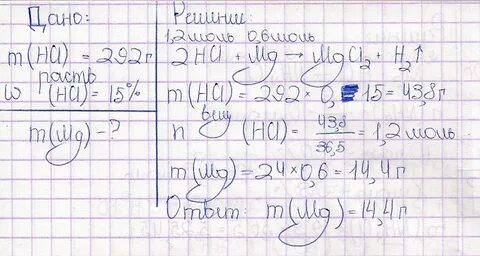 Дано:
m(HCl) = 292г
раств
ω (HCl) = 15%
m(Mg) - ?
Решение:
1,2моль 0,6моль
2HCl + Mg → MgCl₂ + H₂↑
m(HCl) = 292 × 0,15 = 43,8г
вещ
n (HCl) = 43,8/36,5 = 1,2 моль
m(Mg) = 24 × 0,6 = 14,4 г
Ответ: m(Mg) = 14,4 г